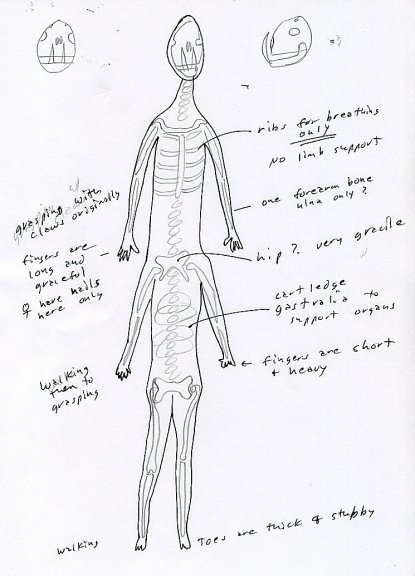 ribs for breathing
only
No limb support
grasping with
claws originally
one forearm bone
ulna only?
fingers are
long and
graceful
& have nails
here only
hip? very gracile
cartledge
gastralia to
support organs
fingers are short
& heavy
walking
then to
grasping
walking
Toes are thick & stubby